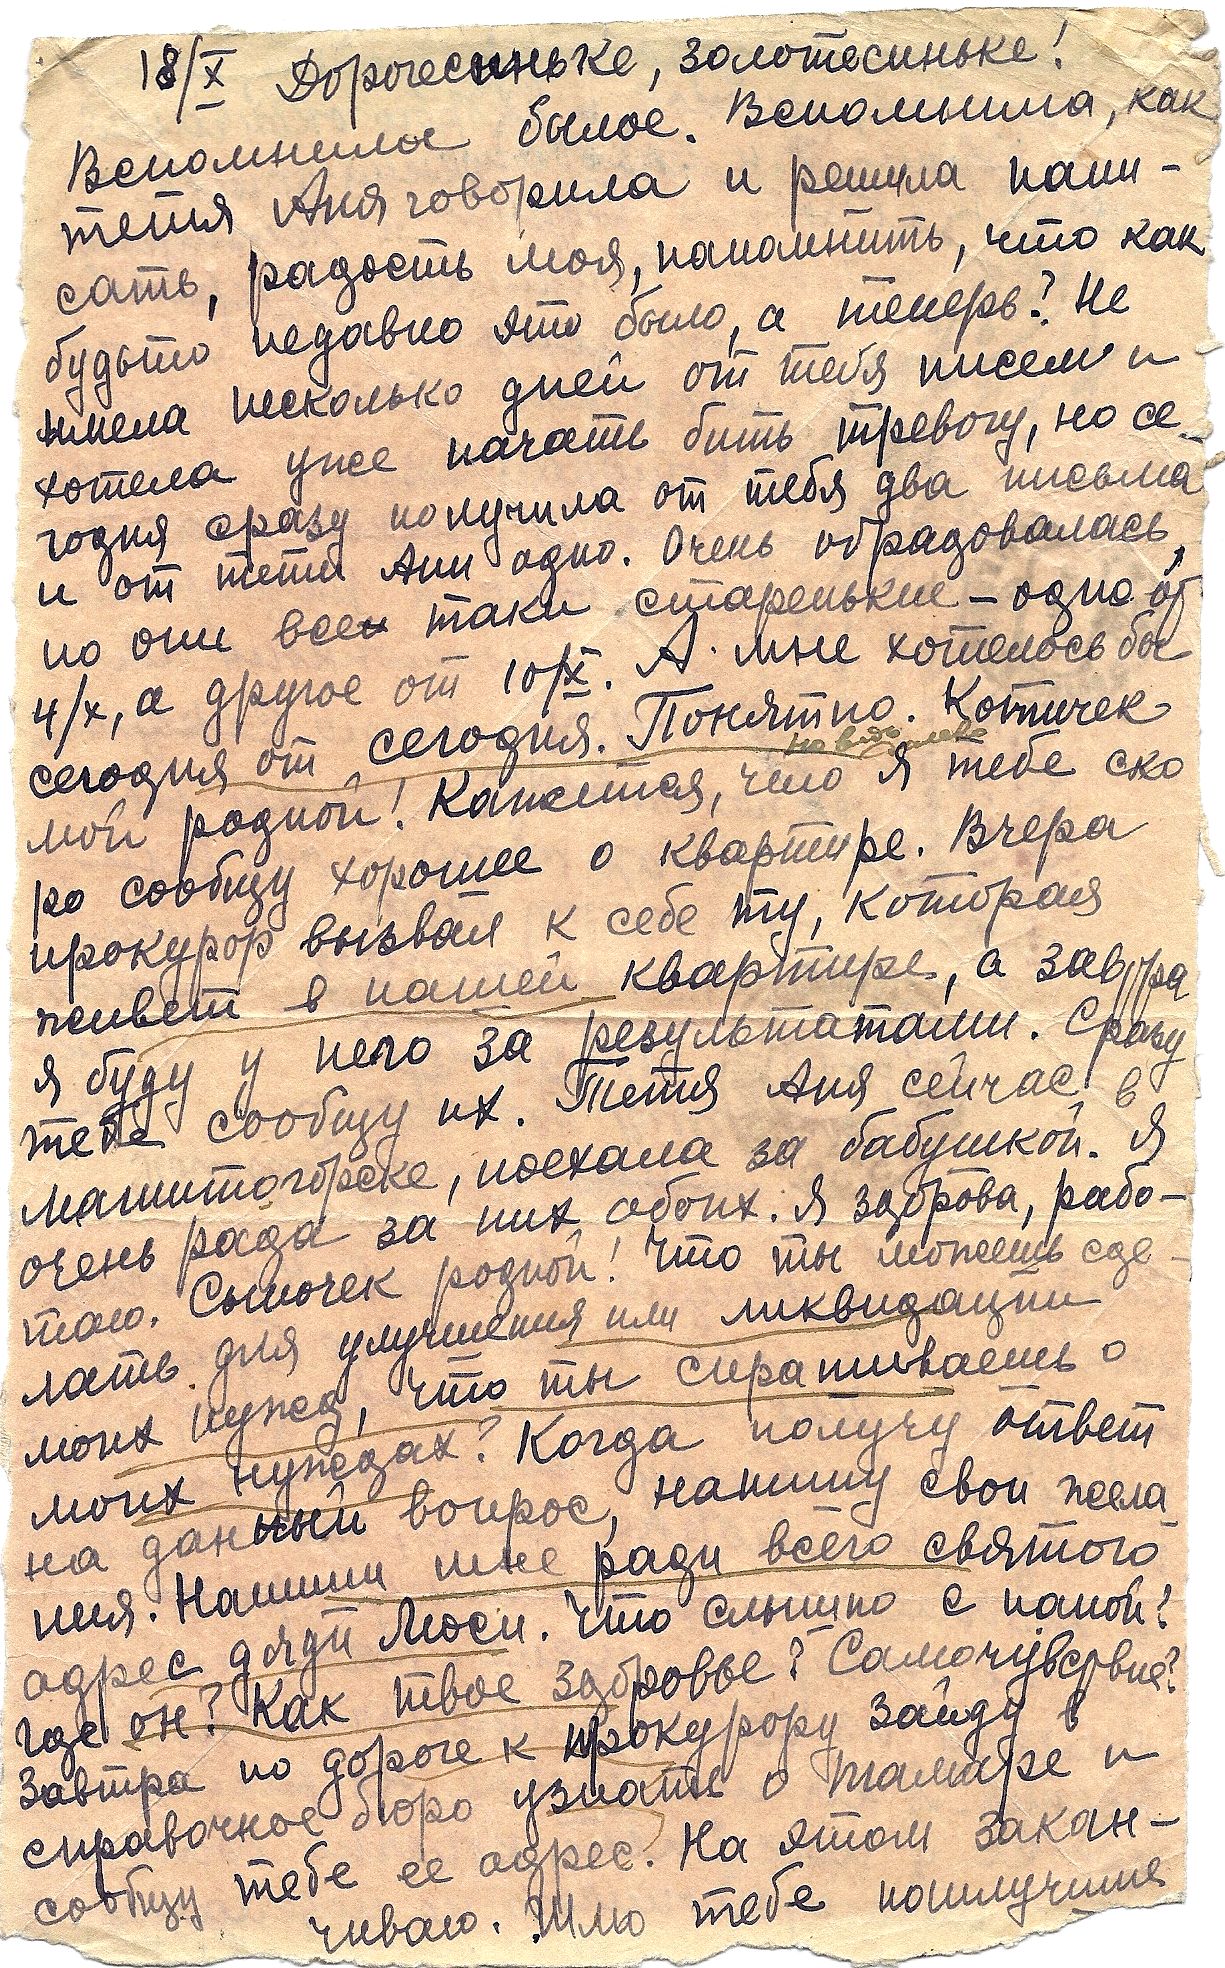 18/X Дорогесиньке, золотесиньке!
Вспомнила былое. Вспомнила, как
тетя Аня говорила и решила напи-
сать, радость моя, напомнить, что как
будьто недавно это было, а теперь? Не
имела несколько дней от тебя писем и
хотела уже начать бить тревогу, но се-
годня сразу получила от тебя два письма
и от тети Ани одно. Очень обрадовалась,
но они все таки старенькие – одно от
4/X, а другое от 10/X. А мне хотелось бы
сегодня от сегодня. Понятно. Котичек
но ведь далеко
мой родной! Кажется, что я тебе ско
ро сообщу хорошее о квартире. Вчера
прокурор вызвал к себе ту, которая
живет в нашей квартире, а завтра
я буду у него за результатами. Сразу
тебе сообщу их. Тетя Аня сейчас в
Магнитогорске, поехала за бабушкой. Я
очень рада за них обоих. Я здорова, рабо-
таю. Сыночек родной! Что ты можешь сде-
лать для улучшения или ликвидации
моих нужд, что ты спрашиваешь о
моих нуждах? Когда получу ответ
на данный вопрос, напишу свои жела
ния. Напиши мне ради всего святого
адрес дяди Люси. Что слышно с папой?
Где он? Как твое здоровье? Самочувствие?
Завтра по дороге к прокурору зайду в
справочное бюро узнать о Тамаре и
сообщу тебе ее адрес. На этом закан-
чиваю. Шлю тебе наилучшие